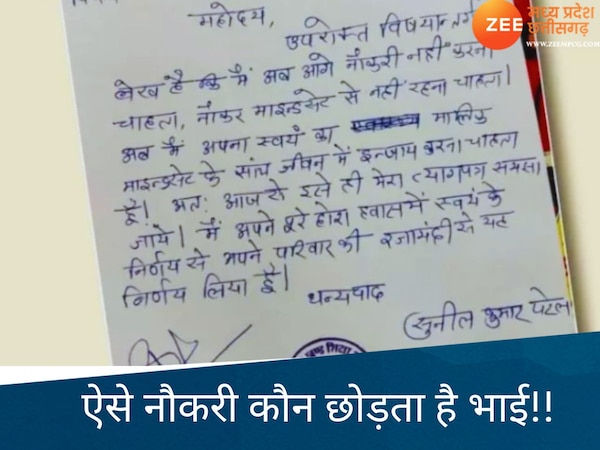 ZEE मध्य प्रदेश छत्तीसगढ़
WWW.ZEEMPCG.COM
महोदय,
उपरोक्त विषयान्तर्गत
लेख है कि मैं अब आगे नौकरी नहीं करना
चाहता, नौकर माइन्डसेट से नहीं रहना चाहता।
अब मैं अपना स्वयं का मालिक
माइन्डसेट के सांथ जीवन में इन्जाय करना चाहता
हूं। अतः आज से इसे ही मेरा त्यागपत्र समझा
जाये। मैं अपने पूरे होश हवास में स्वयं के
निर्णय से अपने परिवार की रजामंदी से यह
निर्णय लिया हूँ।
धन्यवाद
(सुनील कुमार पटेल
ऐसे नौकरी कौन छोड़ता है भाई!!